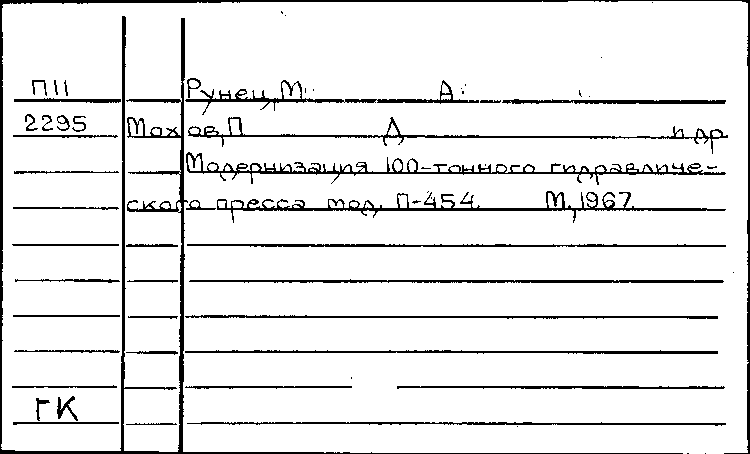 П11 Рунец, М. А.
2295 Мохов, П Д и др
Модернизация 100-тонного гидравличе-
ского пресса мод. П-454. М., 1967.
ГК